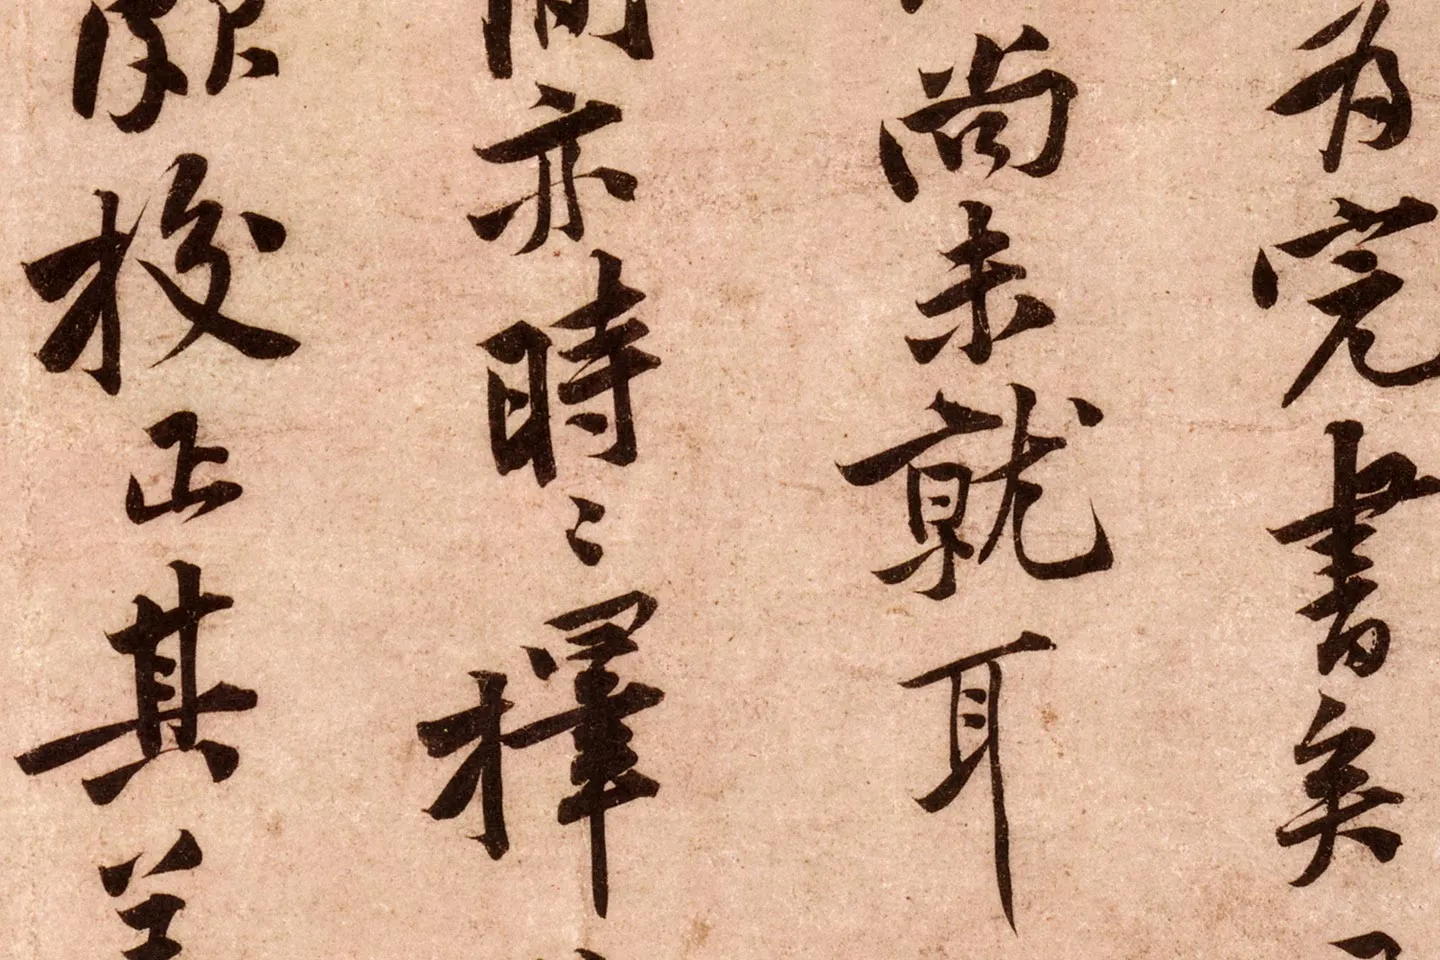 為完書矣
尚未就耳
間亦時〻擇
校正其